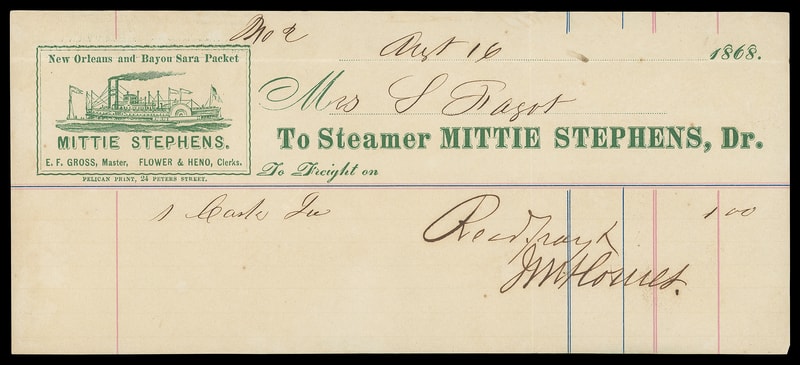 No 2
Augt 16 1868.
New Orleans and Bayou Sara Packet
MITTIE STEPHENS.
E. F. GROSS, Master, FLOWER & HENO, Clerks.
PELICAN PRINT, 24 PETERS STREET.
Mrs S Fagot
To Steamer MITTIE STEPHENS, Dr.
To Freight on
1 Cask 1 00
Recd payt